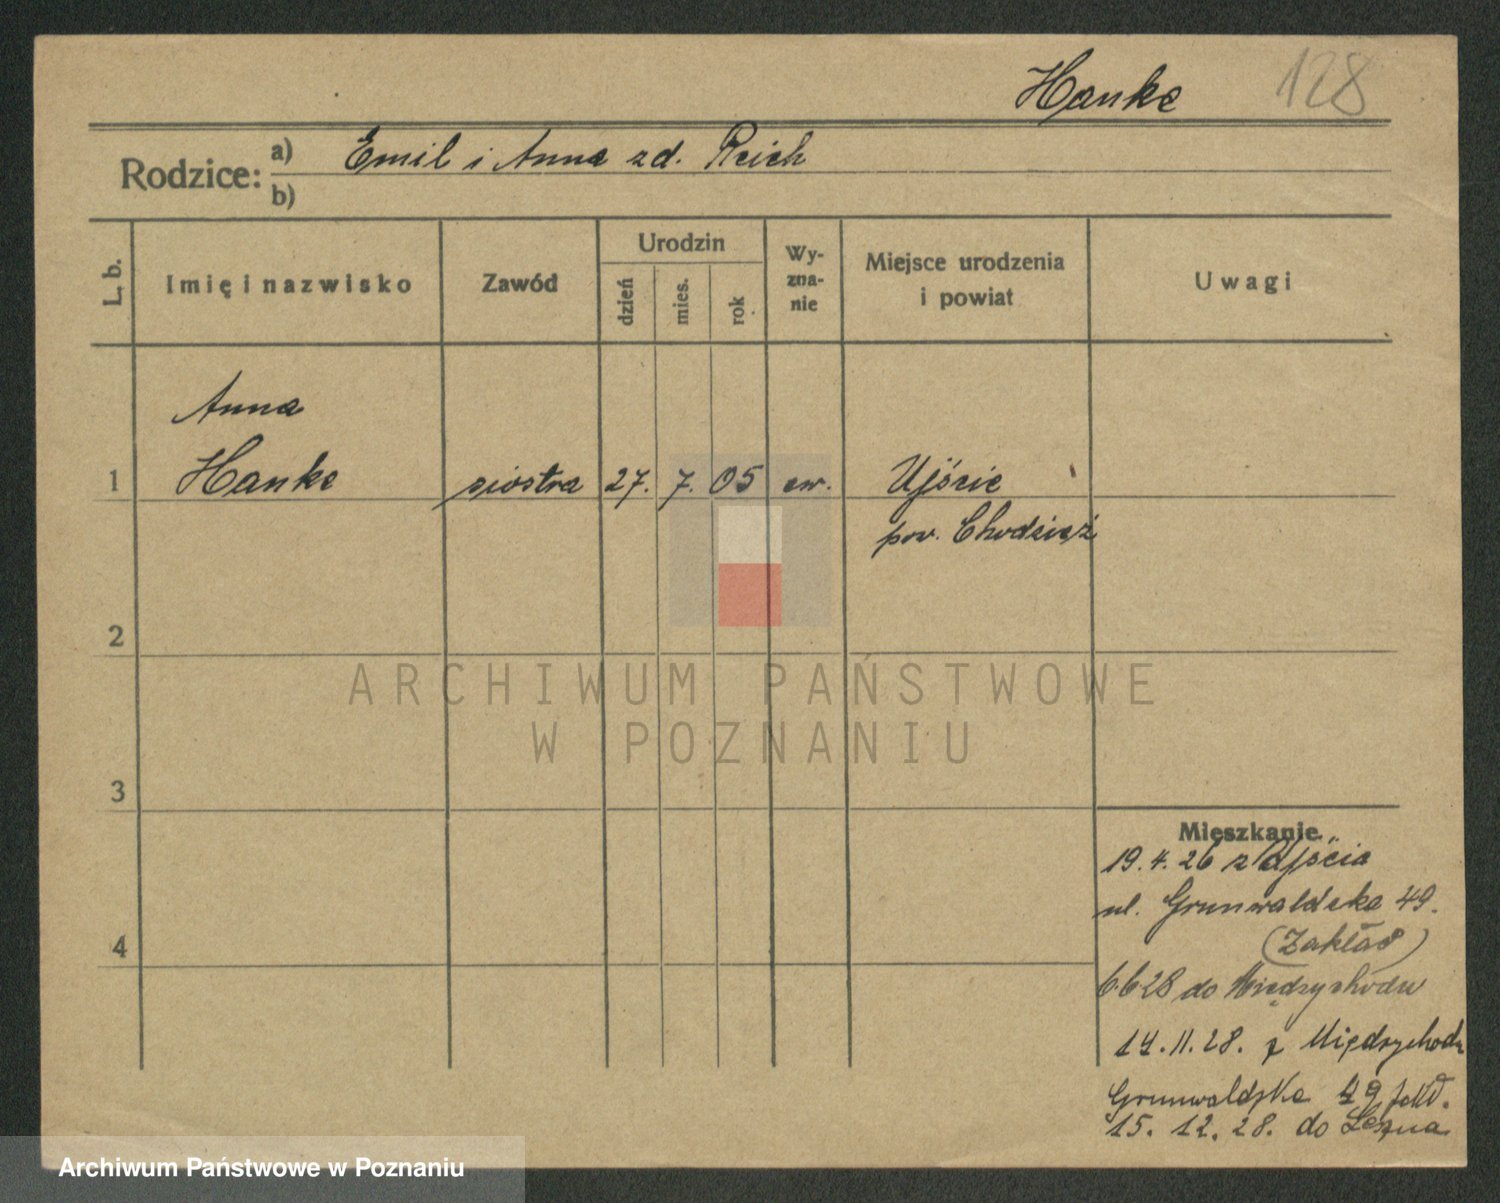 Hanke 128
Rodzice: a) Emil i Anna zd. Reich
b)
L. b.
Imię i nazwisko
Zawód
Urodzin
dzień
mies.
rok
Wy-
zna-
nie
Miejsce urodzenia
i powiat
Uwagi
Anna
1 Hanke siostra 27. 7. 05 ew. Ujście
pow. Chodzież
2
3
4
ARCHIWUM PAŃSTWOWE
W POZNANIU
Mieszkanie
19.4.26 z Ujścia
ul. Grunwaldska 49.
(Zakład)
6.6.28 do Międzychodu
14.11.28. z Międzychodu
Grunwaldska 49
15.12.28. do Leszna
Archiwum Państwowe w Poznaniu